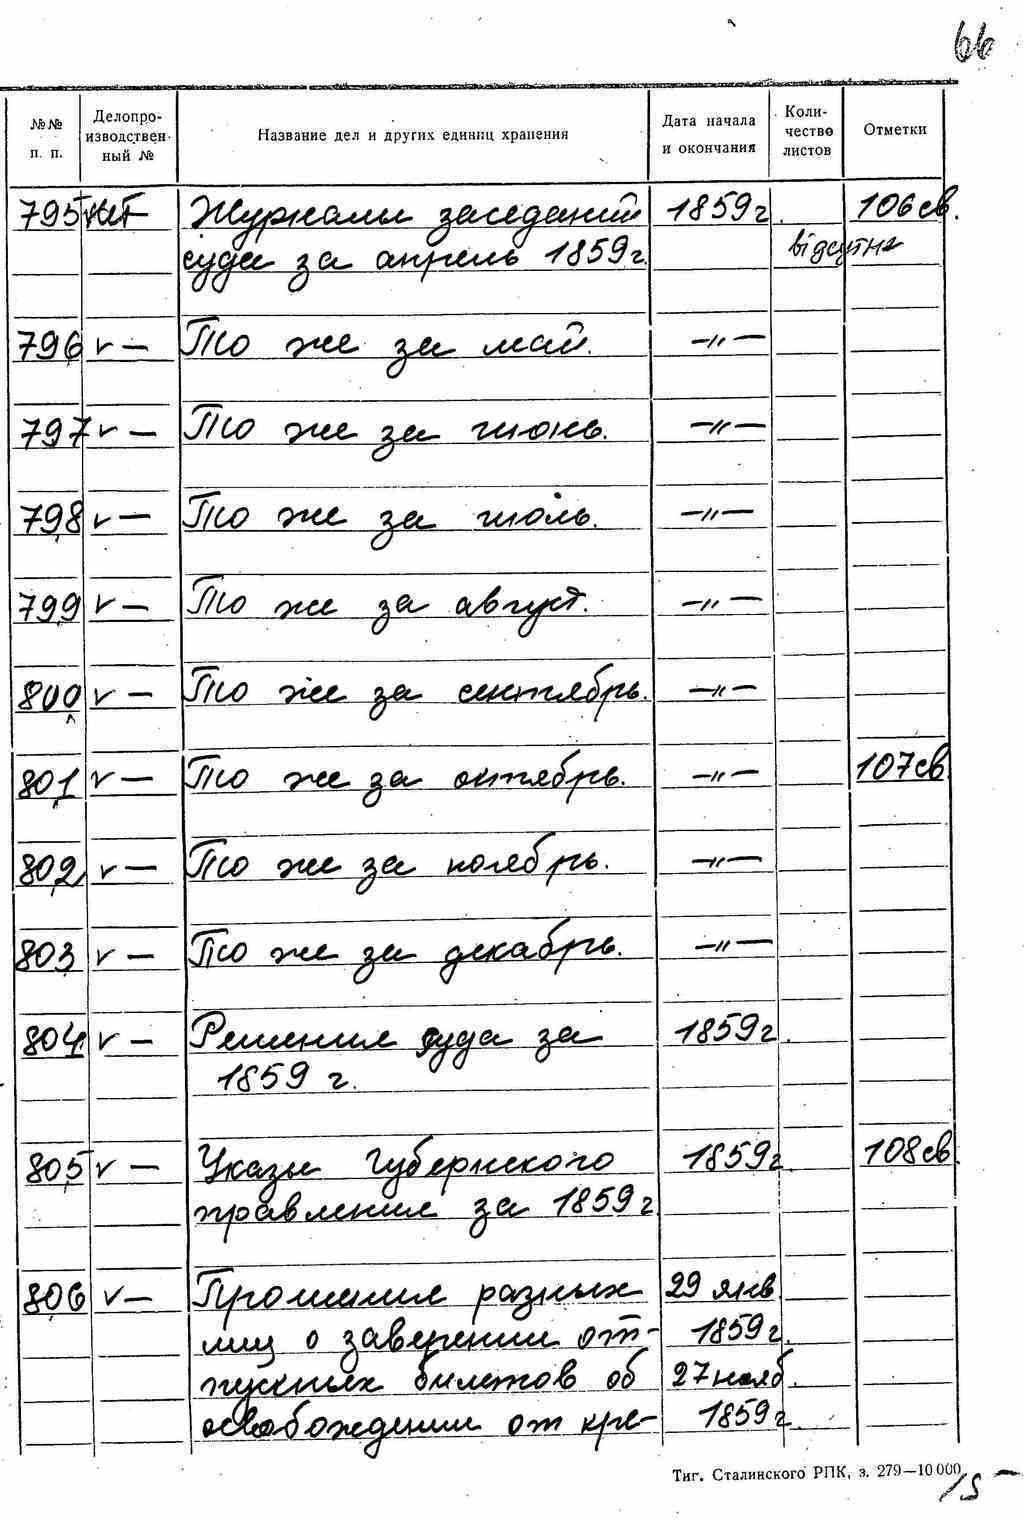 66
№№ п. п. Делопроизводственный № Название дел и других единиц хранения Дата начала и окончания Количество листов Отметки
795 нет Журналы заседаний 1859 г. 106 св.
суда за апрель 1859 г. відсутнє
796 v — То же за май. —"—
797 v — То же за июнь. —"—
798 v — То же за июль. —"—
799 v — То же за август. —"—
800 v — То же за сентябрь. —"—
801 v — То же за октябрь. —"— 107 св
802 v — То же за ноябрь. —"—
803 v — То же за декабрь. —"—
804 v — Решения суда за 1859 г.
1859 г.
805 v — Указы Губернского 1859 г. 108 св.
правления за 1859 г.
806 v — Прошения разных 29 янв
лиц о заверении от- 1859 г.
пускных билетов об 27 нояб.
освобождении от кре- 1859 г.
Тиг. Сталинского РПК, з. 279—10 000